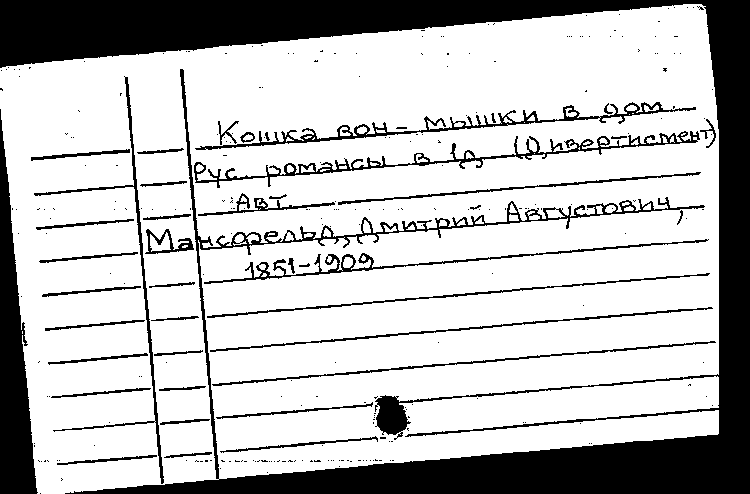 Кошка вон - мышки в дом
Рус. романсы в 1д. (Дивертисмент)
Авт.
Мансфельд, Дмитрий Августович,
1851-1909